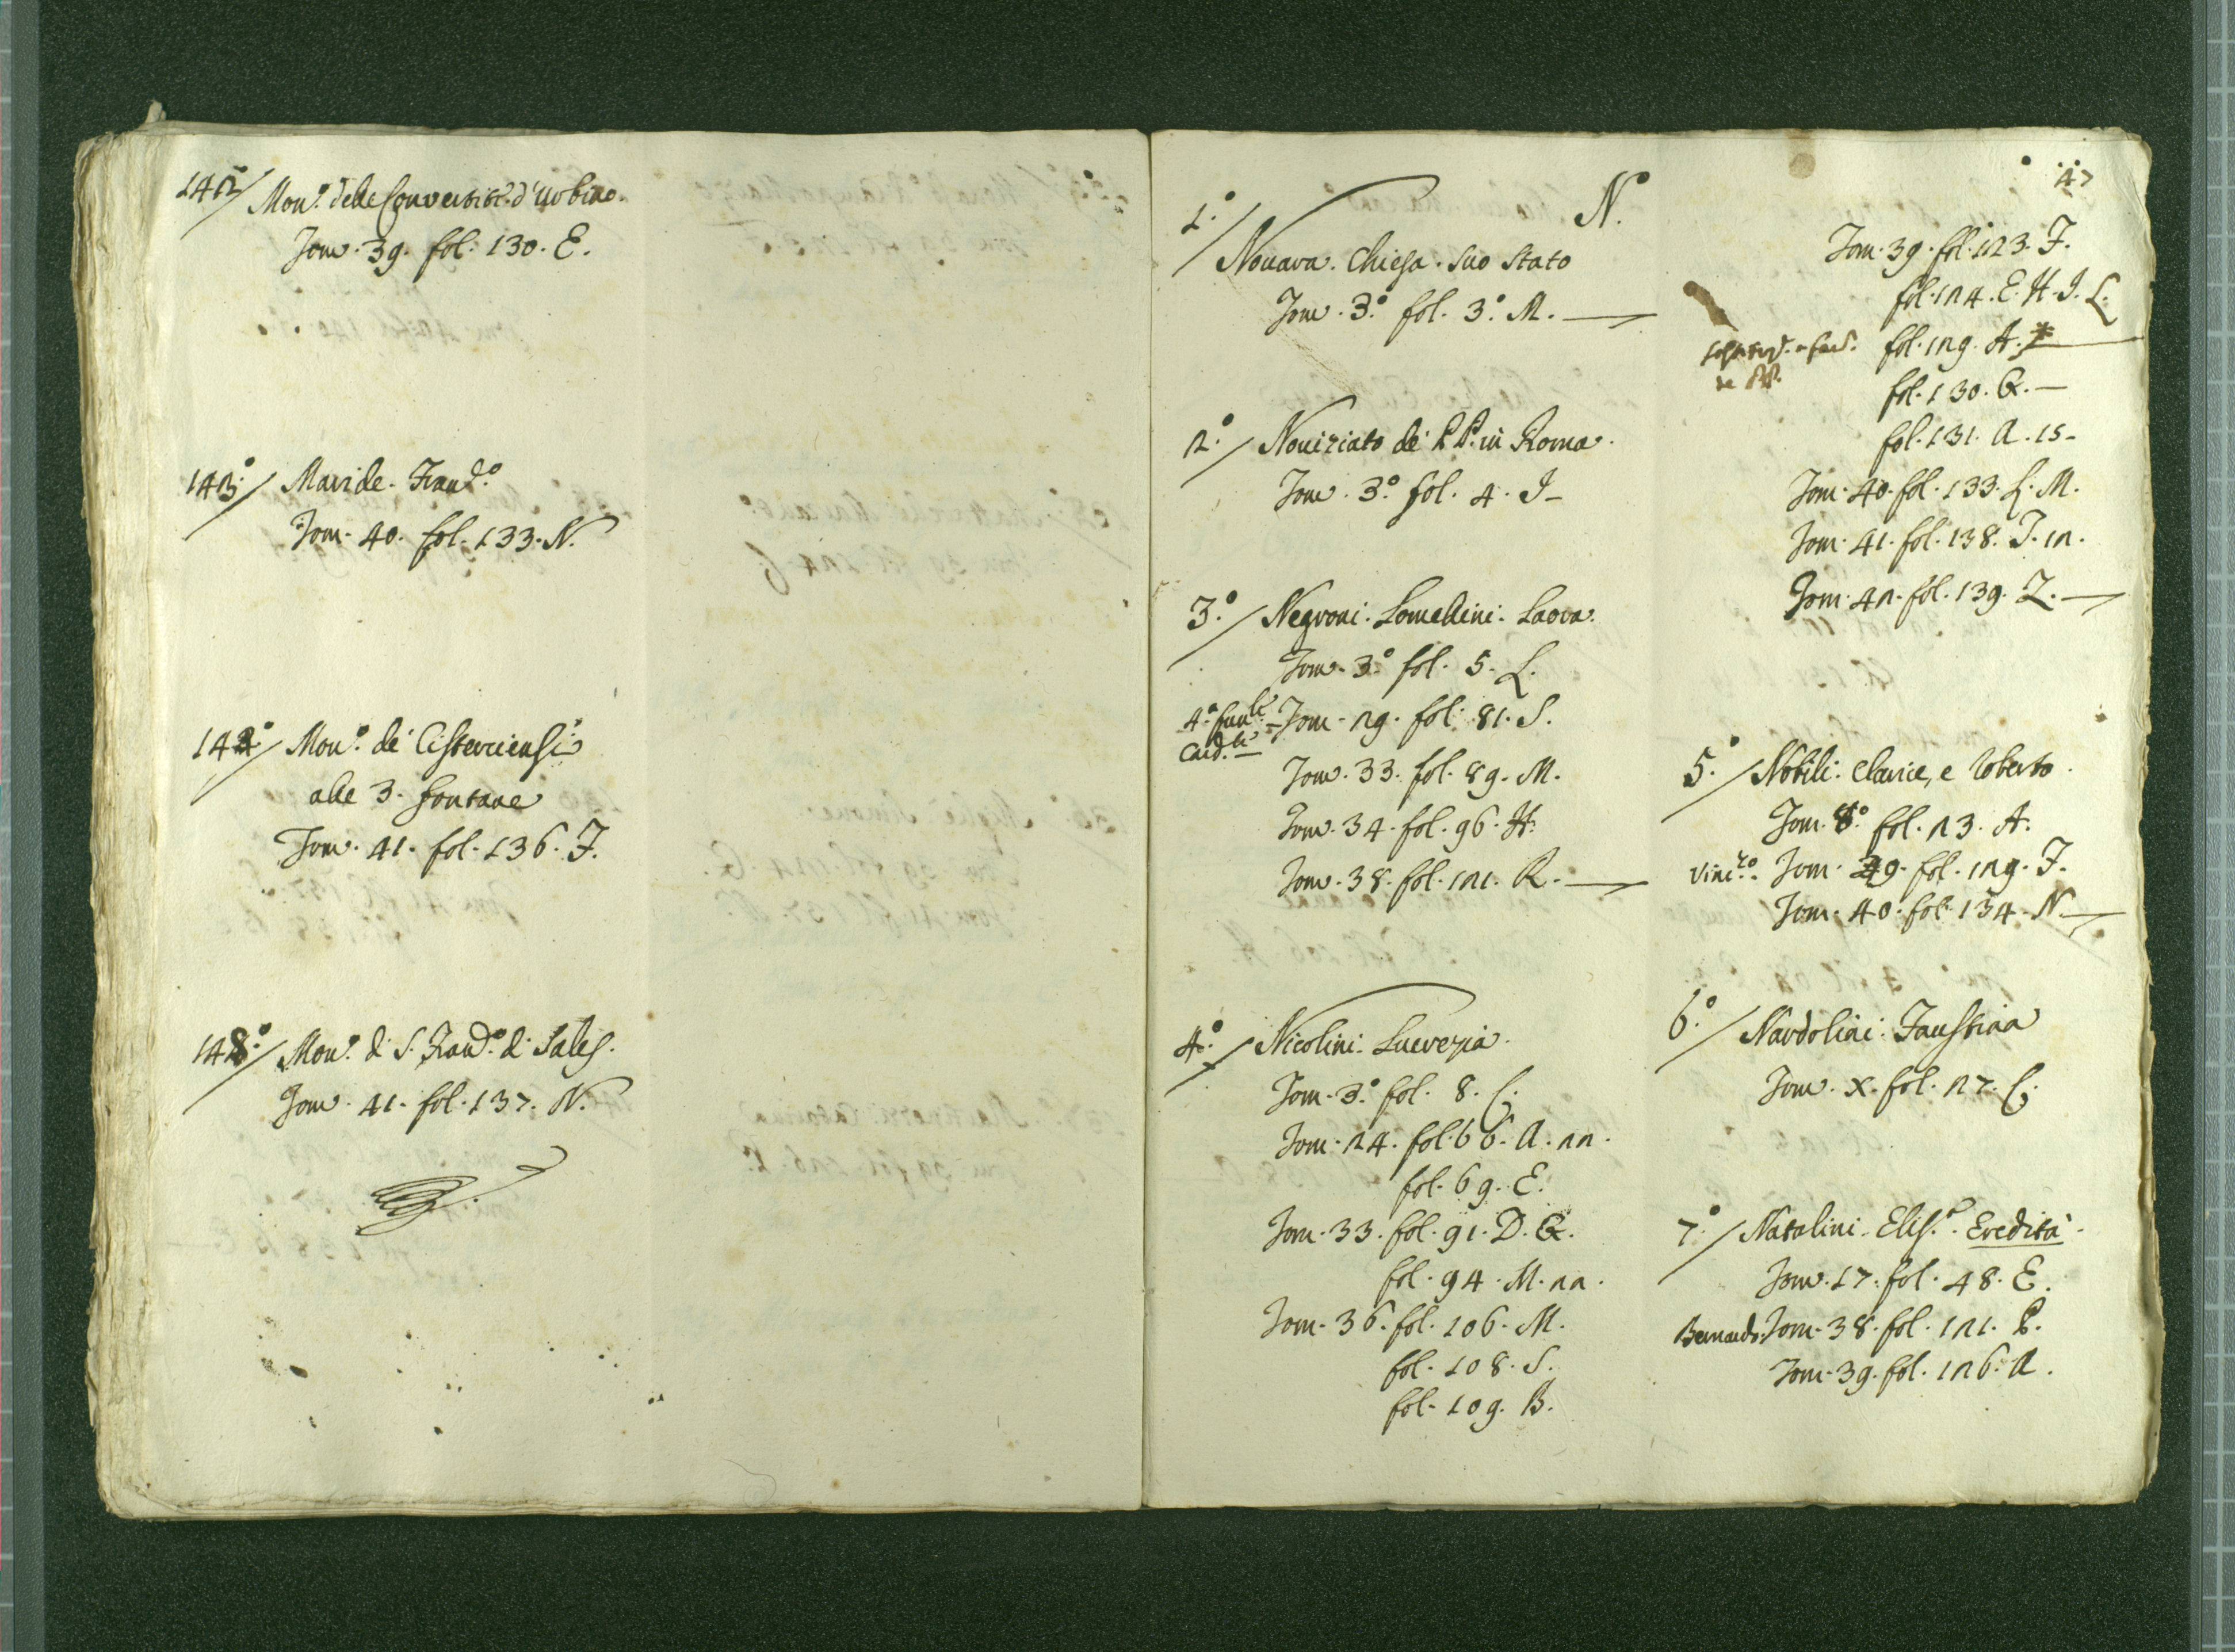 142/ Mon.º delle Convertite d'Urbino.
Tom. 39. fol. 130. E.
143º/ Maride. Fran.º
Tom. 40. fol. 133. N.
144º/ Mon.º de' Cisterciensi
alle 3. fontane
Tom. 41. fol. 136. F.
145º/ Mon.º di S. Fran.º di Sales.
Tom. 41. fol. 137. N.
N.
1º/ Novara. Chiesa. suo stato
Tom. 3º. fol. 3º. M.
2º/ Noviziato de' PP. in Roma.
Tom. 3º. fol. 4. I
3º/ Negroni. Lomellini. Laora.
Tom. 3º. fol. 5. L.
Card.le Tom. 29. fol. 81. S.
Tom. 33. fol. 89. M.
Tom. 34. fol. 96. H.
Tom. 38. fol. 121. R.
4º/ Nicolini. Lucrezia.
Tom. 3º. fol. 8. C.
Tom. 24. fol. 66. A. 22.
fol. 69. E.
Tom. 33. fol. 91. D. Q.
fol. 94. M. 22.
Tom. 36. fol. 106. M.
fol. 108. S.
fol. 109. B.
47
Tom. 39. fol. 123. F.
fol. 124. E. H. I. L.
fol. 129. A.
fol. 130. Q.
fol. 131. A. 15
Tom. 40. fol. 133. L. M.
Tom. 41. fol. 138. I. 12.
Tom. 42. fol. 139. Z.
5º/ Nobili. Clarice, e Roberto.
Tom. 8º. fol. 23. A.
Vinc.zo Tom. 39. fol. 129. F.
Tom. 40. fol. 134. N.
6º/ Nardolini. Faustina
Tom. X. fol. 27. C.
7º/ Natalini. Elis.ª. Eredità.
Tom. 17. fol. 48. E.
Bernardo. Tom. 38. fol. 121. P.
Tom. 39. fol. 126. A.